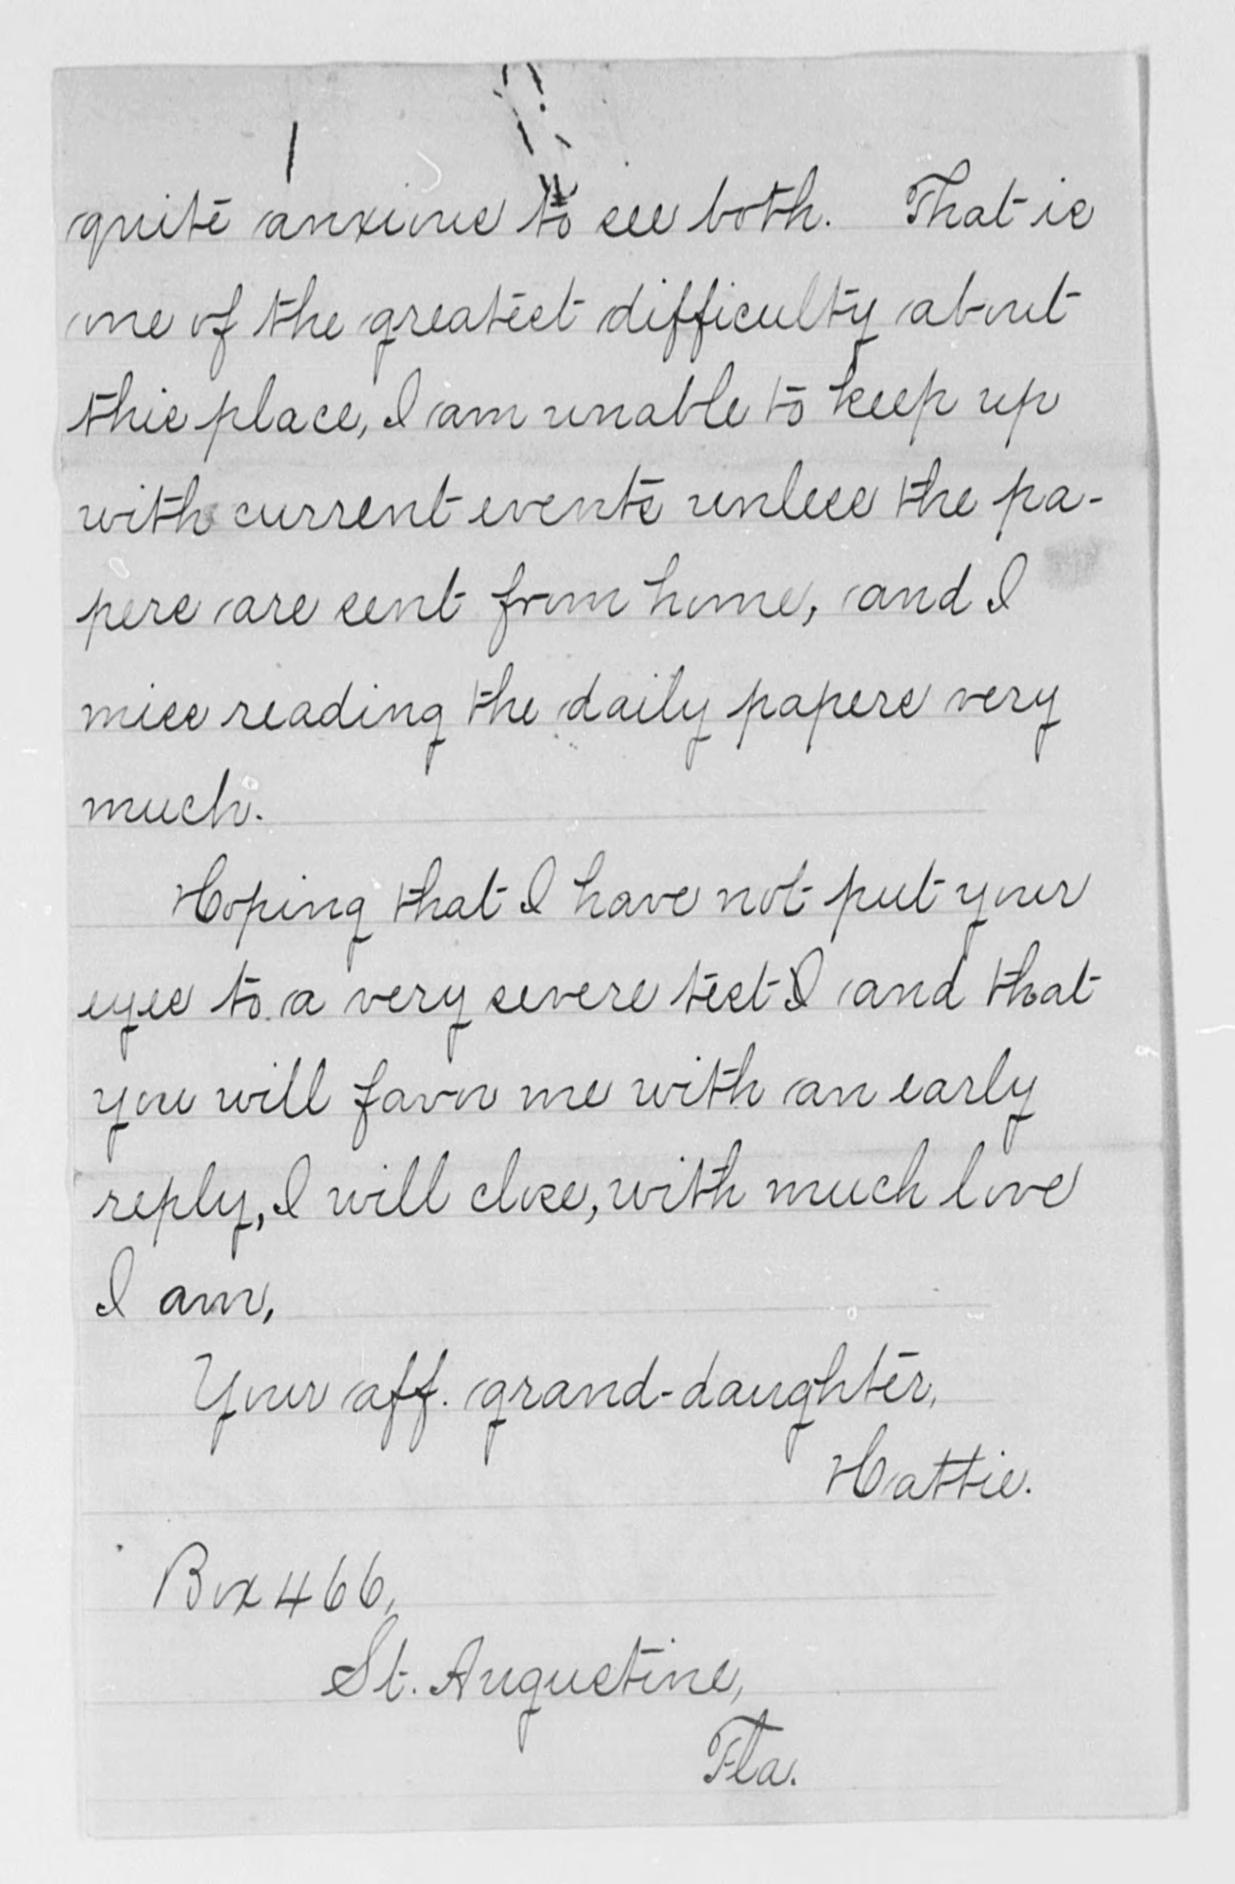 quite anxious to see both. That is
one of the greatest difficulty about
this place, I am unable to keep up
with current events unless the pa-
pers are sent from home, and I
miss reading the daily papers very
much.
Hoping that I have not put your
eyes to a very severe test I and that
you will favor me with an early
reply, I will close, with much love
I am,
Your aff. grand-daughter,
Hattie.
Box 466,
St. Augustine,
Fla.